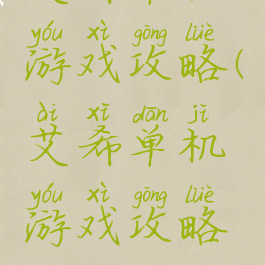 yóu xì gōng lüè
游戏攻略(
ài xī dān jī
艾希单机
yóu xì gōng lüè
游戏攻略